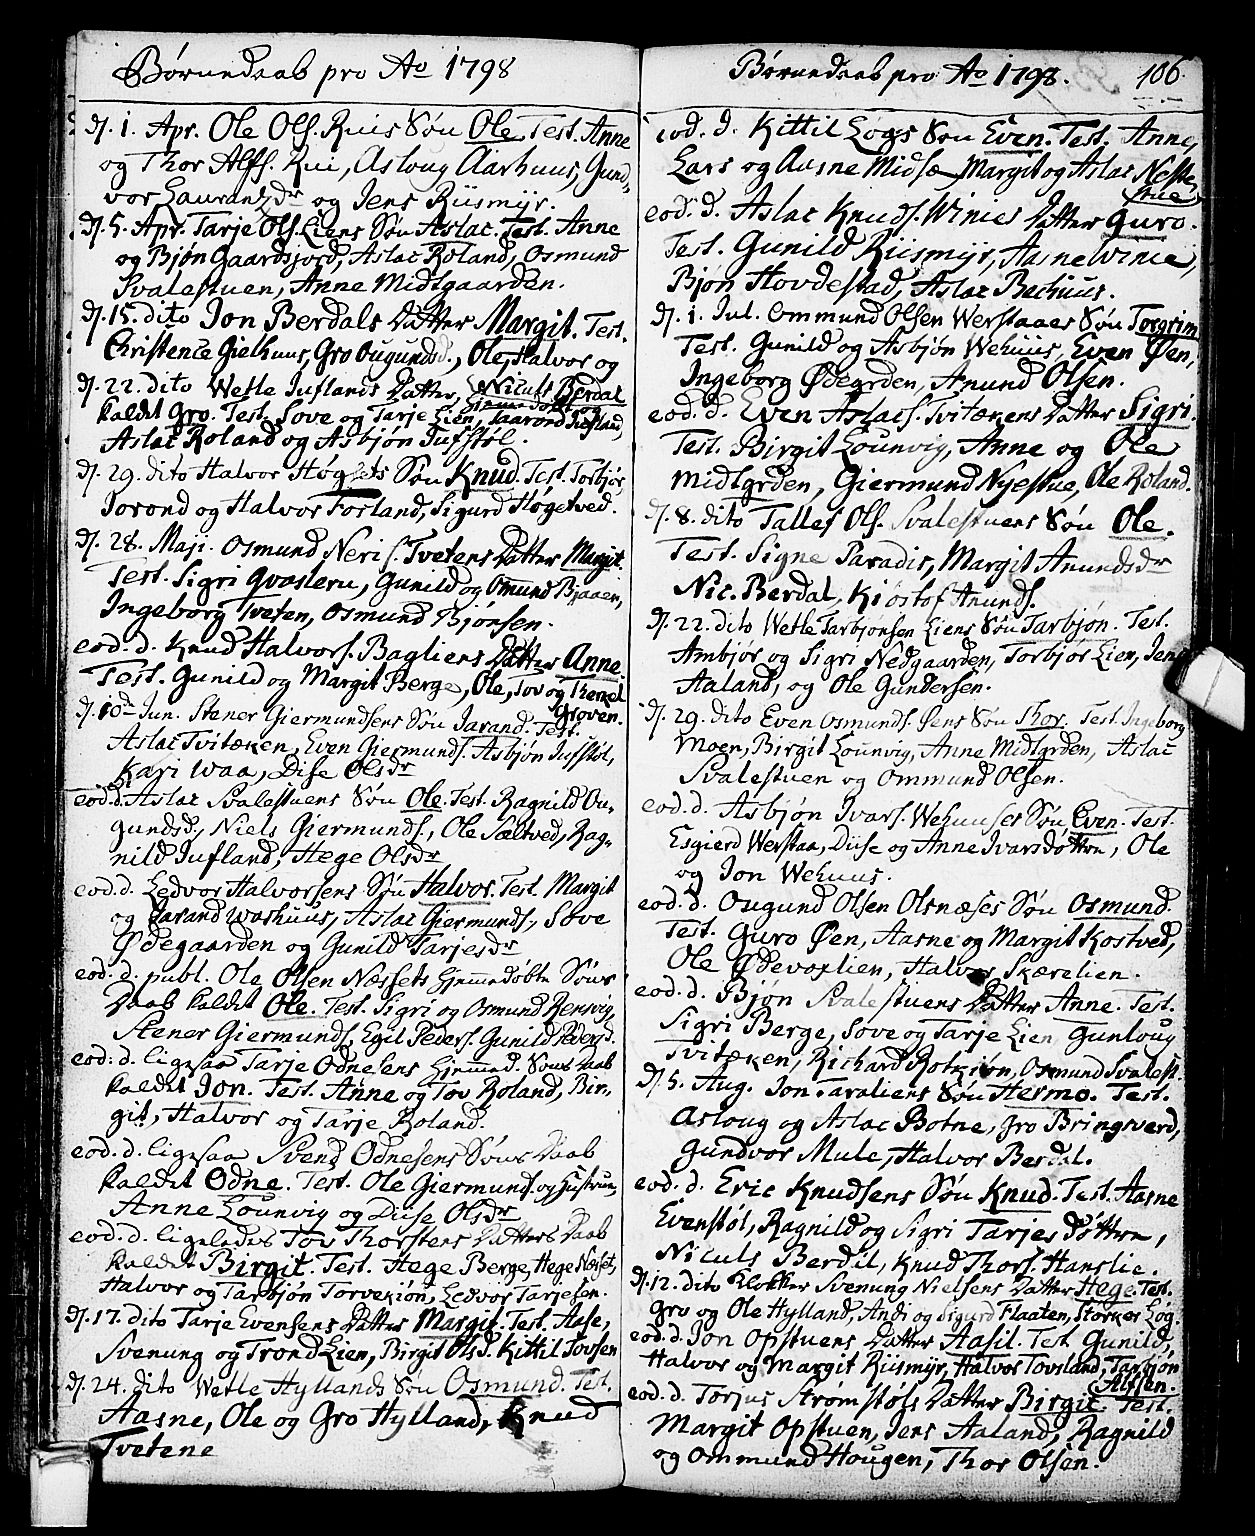 Børnedaab pro Ao 1798
d. 1. Apr. Ole Ols. Ruis Søn Ole. Test. Anne
og Thor Alfs. Rui, Asloug Aarhuus, Gund-
vor Laurantzdr og Jens Riismyr.
d. 5. Apr. Tarje Ols. Liens Søn Aslac. Test. Anne
og Bjøn Gaardsjord, Aslac Roland, Osmund
Svalestuen, Anne Midtgaarden.
d. 15. dito Jon Berdals Datter Margit. Test.
Christence Gielhuus, Gro Ougundsd., Ole, Halvor og
Niculs Berdal
d. 22. dito Wetle Juflands Datter, hjemmedøbt
kaldet Gro. Test. Sove og Tarje Lien, Taarond Jufland,
Aslac Roland og Asbjøn Jufstøl.
d. 29. dito Halvor Høgets Søn Knud. Test. Torbjør,
Jorond og Halvor Forland, Sigurd Høgetved.
d. 28. Maji. Osmund Neris. Tvetens Datter Margit.
Test. Sigri Qvasleru, Gunild og Omund Bjaaen,
Ingeborg Tveten, Osmund Bjønsen.
eod. d. Knud Halvors. Bagliens Datter Anne.
Test. Gunild og Margit Berge, Ole, Tov og Therkel
Groven.
d. 10de Jun. Stener Giermundsens Søn Jarand. Test.
Aslac Tvitæken, Even Giermunds. Asbjøn Jufstøl,
Kari Waa, Dise Olsdr
eod. d. Aslac Svalestuens Søn Ole. Test. Ragnild Ou-
gundsd., Niels Giermunds., Ole Sæltved, Rag-
nild Jufland, Hege Olsdr
eod. d. Ledvor Halvorsens Søn Halvor. Test. Margit
og Jarand Warhuus, Aslac Giermunds., Sove
Ødegaarden og Gunild Tarjesdr
eod. d. publ. Ole Olsen Næssets hjemmedøbte Søns
Daab kaldet Ole. Test. Sigri og Osmund Rensvig,
Stener Giermunds., Egil Peders. Gunild Pedersd.
eod. d. ligesaa Tarje Odnesens hjemmed. Søns Daab
kaldet Jon. Test. Anne og Tov Roland, Bir-
git, Halvor og Tarje Roland.
eod. d. ligesaa Svend Odnesens Søns Daab
kaldet Odne. Test. Ole Giermunds. og Hustrue,
Anne Lounvig og Diise Olsdr
eod. d. ligeledes Tov Thorstens Datters Daab
kaldet Birgit. Test. Hege Berge, Hege Næset,
Halvor og Tarbjøn Torvekiøn, Ledvor Tarjesen.
d. 17. dito Tarje Evensens Datter Margit. Test. Aase,
Svenung og Trond Lien, Birgit Olsd. Kittil Tovsen
d. 24. dito Wetle Hyllands Søn Osmund. Test.
Aasne, Ole og Gro Hylland, Knud
Tvetene
Børnedaab pro Ao 1798. 106.
eod. d. Kittil Løgs Søn Even. Test. Anne,
Lars og Aasne Midsæ, Margit og Aslac Neste-
stue
eod. d. Aslac Knuds. Winies Datter Guro.
Test. Gunild Riismyr, Aasne Winie,
Bjøn Hovdestad, Aslac Bechuus.
d. 1. Jul. Ommund Olsen Werstaaes Søn Torgrim
Test. Gunild og Asbjøn Wehuus, Even Øen,
Ingeborg Ødegrden, Anund Olsen.
eod. d. Even Aslacs. Tvitækens Datter Sigri.
Test. Birgit Lounvig, Anne og Ole
Midtgrden, Giermund Nyestue, Ole Roland.
d. 8. dito Tallef Ols. Svalestuens Søn Ole.
Test. Signe Paradis, Margit Anundsdr
Nic. Berdal, Kiøstof Anunds.
d. 22. dito Wetle Tarbjønsen Liens Søn Tarbjøn. Test.
Ambjør og Sigri Nedgaarden, Torbjør Lien, Jens
Aaland, og Ole Gundersen.
d. 29. dito Even Osmunds. Øens Søn Thor. Test. Ingeborg
Moen, Birgit Lounvig, Anne Midtgrden, Aslac
Svalestuen og Ommund Olsen.
eod. d. Asbjøn Ivars. Wehuuses Søn Even. Test.
Esgierd Werstaa, Diise og Anne Ivarsdøttre, Ole
og Jon Wehuus.
eod. d. Ougund Olsen Olsnæses Søn Osmund.
Test. Guro Øen, Aasne og Margit Kostved,
Ole Ødevaslien, Halvor Skærelien.
eod. d. Bjøn Svalestuens Datter Anne. Test.
Sigri Berge, Sove og Tarje Lien Gunloug
Tvitæken, Richard Rotkiøn, Osmund Svalest.
d. 5. Aug. Jon Taraliens Søn Hermo. Test.
Asloug og Aslac Botne, Gro Bringsverd,
Gundvor Mule, Halvor Berdal.
eod. d. Eric Knudsens Søn Knud. Test. Aasne
Evenstøl, Ragnild og Sigri Tarjesdøttre,
Niculs Berdal, Knud Thors. Hanslie.
d. 12. dito Klokker Svenung Nielsens Datter Hege. Test.
Gro og Ole Hylland, Andi og Sigurd Flaaten, Størker Løg.
eod. d. Jon Opstuens Datter Aasil. Test. Gunild,
Halvor og Margit Riismyr, Halvor Tovsland, Tarbjøn
Alfsen.
eod. d. Torjus Strømstøls Datter Birgit. Test.
Margit Opstuen, Jens Aaland, Ragnild
og Ommund Hougen, Thor Olsen.